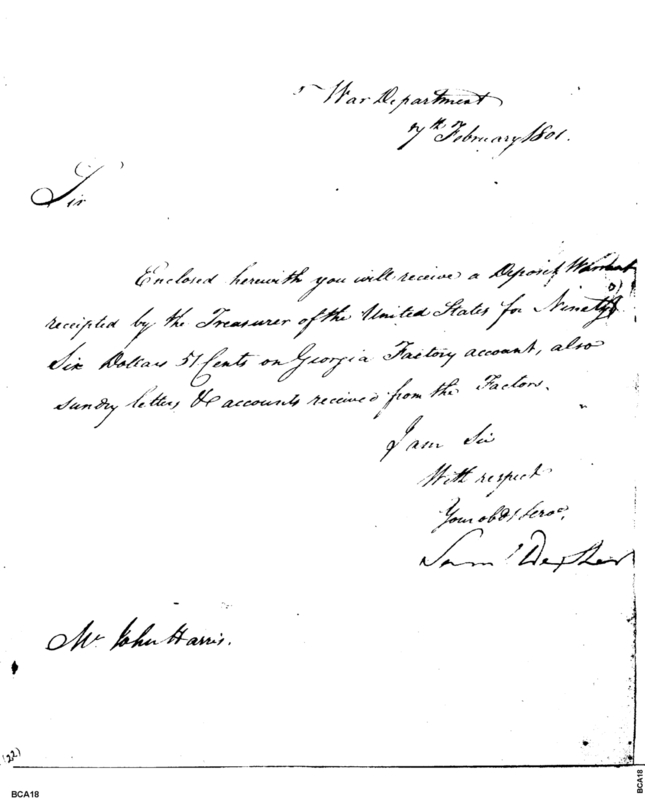 War Department
7th February 1801.
Sir
Enclosed herewith you will receive a Deposit Warrant
receipted by the Treasurer of the United States for Ninety
Six Dollars 51 Cents on Georgia Factory account, also
sundry letters & accounts received from the Factors.
I am Sir
With respect
Your obdt Servt.
Saml Dexter
Mr John Harris.
(22)
BCA18
BCA18